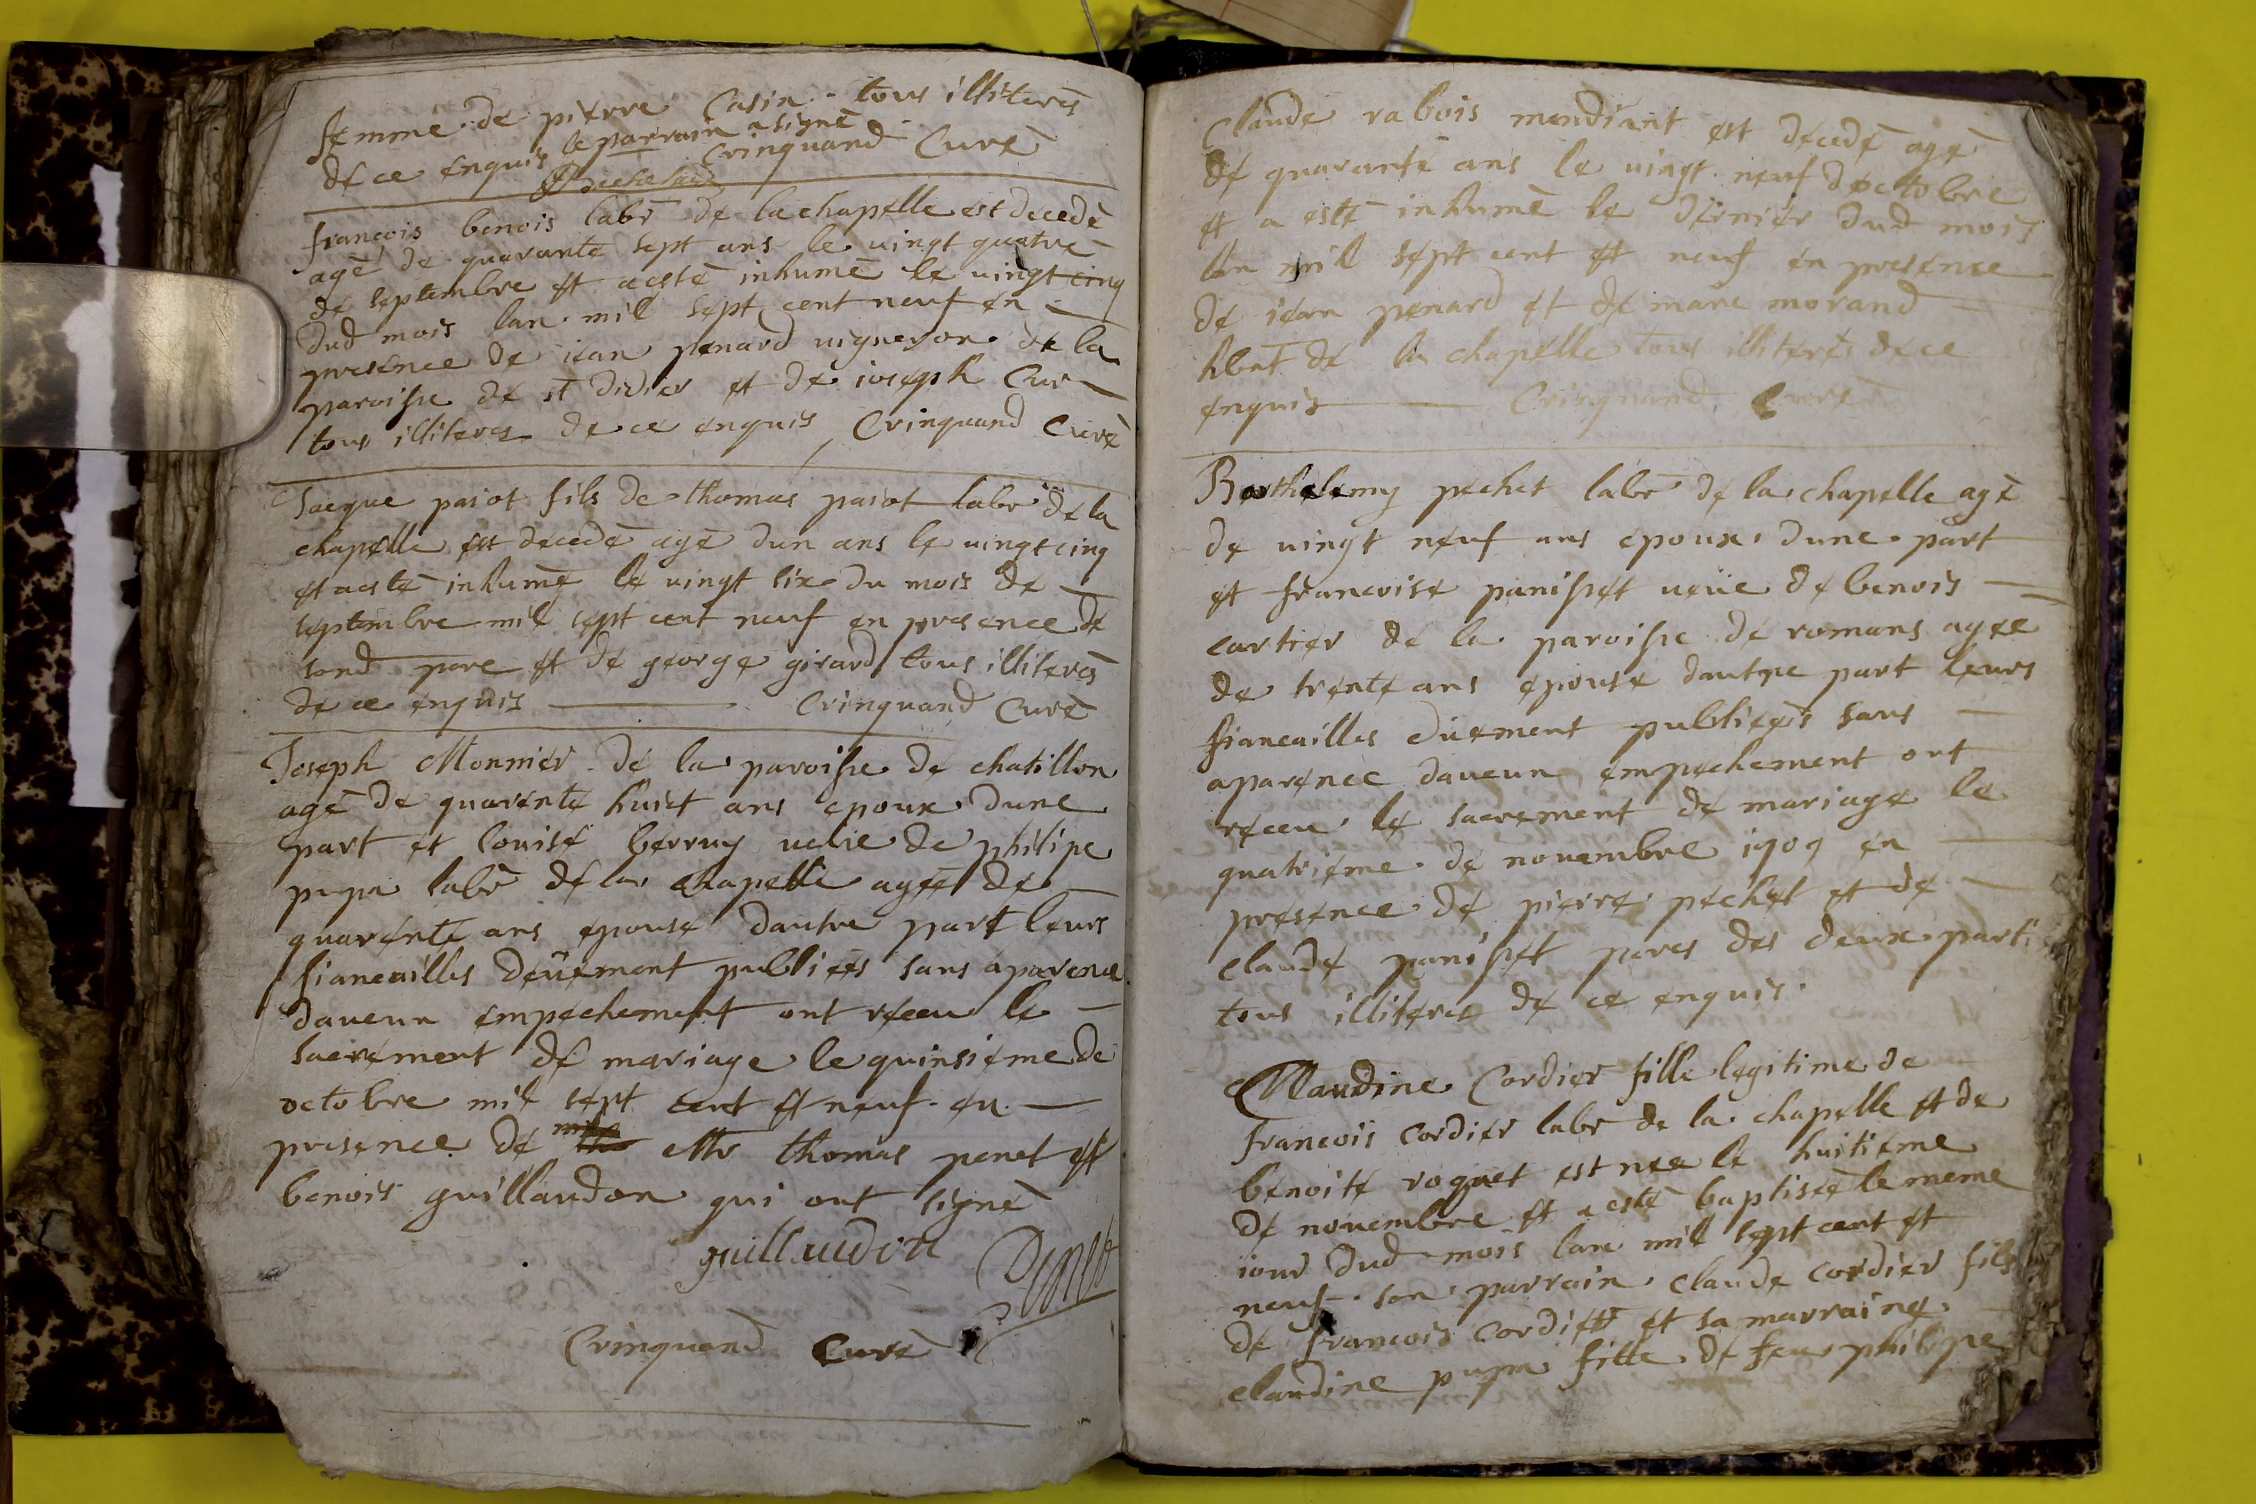 femme de pierre Casin tous illiterés
de ce enquis le parrain a signé
Crinquand Curé
francois benois labr de la chapelle est decedé
agé de quarante sept ans le vingt quatre
de septembre et a esté inhumé le vingt cinq
dud mois lan mil sept cent neuf en
presence de iean penard vigneron de la
paroisse de st didier et de ioseph Cur
tous illiteres de ce enquis Crinquand Curé
Jacque paiot fils de thomas paiot labr de la
chapelle est decedé agé dun ans le vingt cinq
et a esté inhumé le vingt six du mois de
septembre mil sept cent neuf en presence de
sond pere et de george girard tous illiterés
de ce enquis Crinquand Curé
Joseph Monnier de la paroisse de chatillon
agé de quarente huict ans epoux dune
part et louise berruy veüe de philipe
pupa labr de la chapelle agée de
quarente ans epouse dautre part leurs
fiancailles deüement publiées sans aparence
daucun empechement ont receu le
sacrement de mariage le quinsieme de
octobre mil sept cent et neuf en
presence de Mr thomas penet et
benois guillaudon qui ont signé
guillaudon
Penet
Crinquand Curé
Claude rabois mendiant est decedé agé
de quarante ans le vingt neuf doctobre
et a esté inhumé le dernier dud mois
lan mil sept cent et neuf en presence
de iean penard et de marc morand
hbnt de la chapelle tous illiterés de ce
enquis Crinquand Curé
Barthelemy pechet labr de la chapelle agé
de vingt neuf ans epoux dune part
et francoise panisset veüe de benois
cartier de la paroisse de romans agee
de trente ans epouse dautre part leurs
fiancailles düement publiées sans
aparence daucun empechement ont
receu le sacrement de mariage le
quatrieme de novembre 1709 en
presence de pierre pechet et de
claude panisset peres des deux parti
tous illiteres de ce enquis
Claudine Cordier fille legitime de
francois cordier labr de la chapelle et de
benoite roguet est née le huitieme
de novembre et a esté baptisée le meme
iour dud mois lan mil sept cent et
neuf son parrain claude cordier fils
de francois cordier et sa marraine
claudine pupa fille de feu philipe